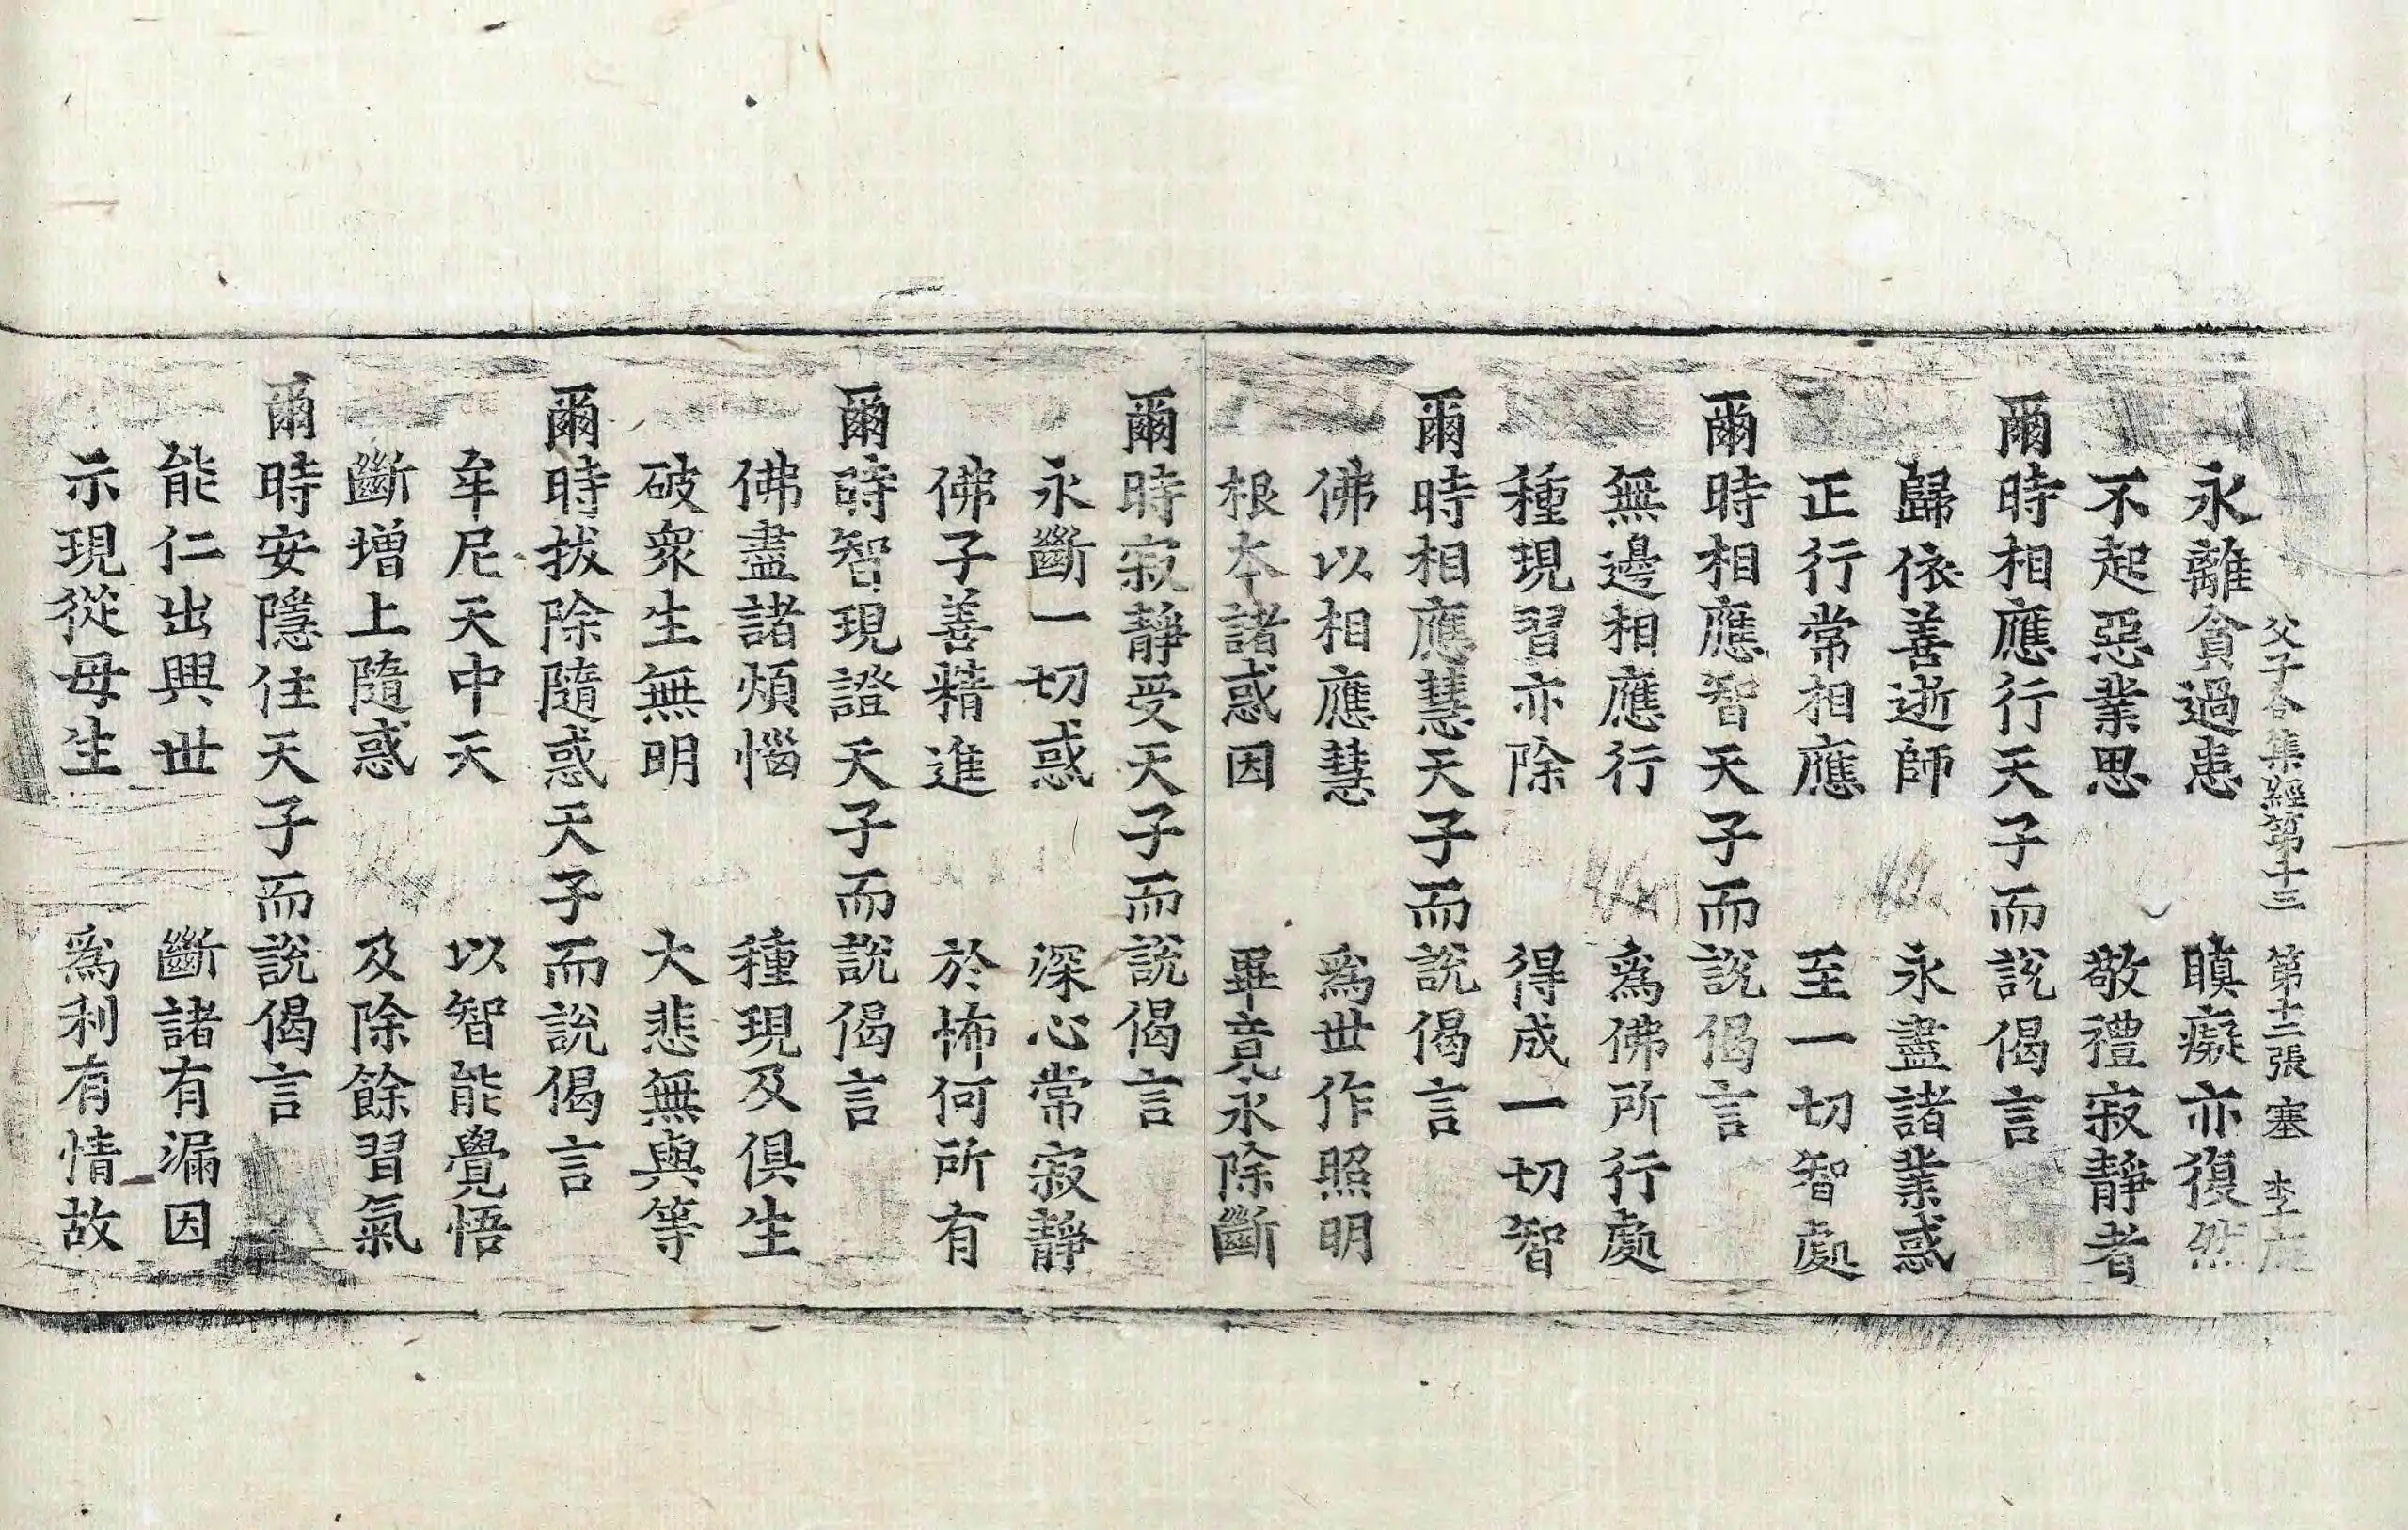 父子合集經第十三 第十二張 塞 李
永離貪過患 瞋癡亦復然
不起惡業思 敬禮寂靜者
爾時相應行天子而說偈言
歸依善逝師 永盡諸業惑
正行常相應 至一切智處
爾時相應智天子而說偈言
無邊相應行 爲佛所行處
種現習亦除 得成一切智
爾時相應慧天子而說偈言
佛以相應慧 爲世作照明
根夲諸惑因 畢竟永除斷
爾時寂靜受天子而說偈言
永斷一切惑 深心常寂靜
佛子善精進 於怖何所有
爾時智現證天子而說偈言
佛盡諸煩惱 種現及俱生
破衆生無明 大悲無與等
爾時拔除隨惑天子而說偈言
牟尼天中天 以智能覺悟
斷增上隨惑 及除餘習氣
爾時安隱住天子而說偈言
能仁出興世 斷諸有漏因
示現從母生 爲利有情故